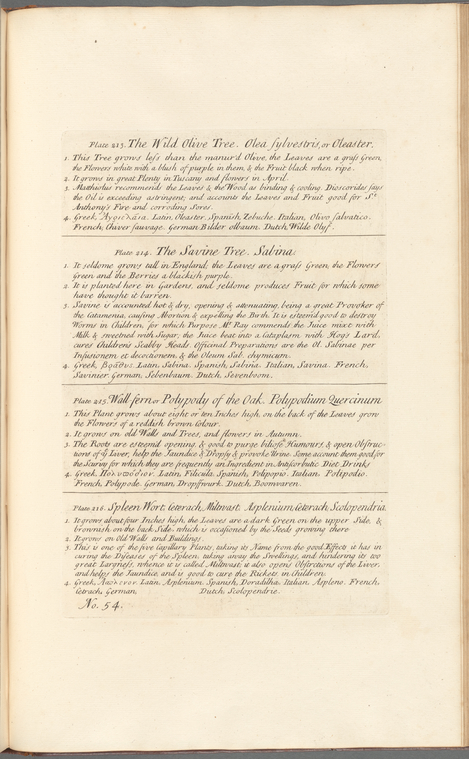 Plate 213. The Wild Olive Tree. Olea sylvestris, or Oleaster.
1. This Tree grows less than the manur'd Olive, the Leaves are a grass Green,
the Flowers white with a blush of purple in them, & the Fruit black when ripe.
2. It grows in great Plenty in Tuscany and flowers in April.
3. Matthiolus recommends the Leaves & the Wood as binding & cooling. Dioscorides says
the Oil is exceeding astringent, and accounts the Leaves and Fruit good for St.
Anthony's Fire and corroding Sores.
4. Greek, Latin, Oleaster, Spanish, Zebuche. Italian, Olivo salvatico.
French, sauvage. German olbaum. Dutch, Wilde Olyf.
Plate 214. The Savine Tree. Sabina.
1. It seldome grows tall in England; the Leaves are a grass Green, the Flowers
Green and the Berries a blackish purple.
2. It is planted here in Gardens, and seldome produces Fruit for which some
have thought it barren.
3. Savine is accounted hot & dry, opening & attenuating, being a great Provoker of
the Catamenia, causing Abortion & expelling the Birth. It is esteem'd good to destroy
Worms in Children, for which Purpose Mr. Ray commends the Juice mixt with
Milk & sweetned with Sugar; the Juice beat into a Cataplasm with Hogs Lard,
cures Childrens Scabby Heads. Officinal Preparations are the Ol. Sabinae per
Infusionem et decoctionem & the Oleum Sab. chymicum.
4. Greek, Latin, Sabina. Spanish, Sabina. Italian, Savina. French,
Savinier. German, Sebenbaum. Dutch, Sevenboom.
Plate 215. Wall-fern or Polypody of the Oak. Polypodium Quercinum
1. This Plant grows about eight or ten Inches high, on the back of the Leaves grow
the Flowers of a reddish brown Colour.
2. It grows on old Walls and Trees, and flowers in Autumn.
3. The Roots are esteem'd opening, & good to purge biliose Humours, & open Obstruc-
tions of ye Liver, help the Jaundice & Dropsy & provoke Urine. Some account them good for
the Scurvy for which they are frequently an Ingredient in Antiscorbutic Diet Drinks
4. Greek, Latin, Filicula. Spanish, Polipopio. Italian, Polipodio.
French, Polypode. German, Dropffwurk. Dutch, Boomvaren.
Plate 216. Spleen Wort, Ceterach, Miltwast. Asplenium, Ceterach, Scolopendria.
1. It grows about four Inches high, the Leaves are a dark Green on the upper Side, &
brownish on the back Side, which is occasioned by the Seeds growing there
2. It grows on Old Walls and Buildings.
3. This is one of the five Capillary Plants, taking its Name from the good Effects it has in
curing the Diseases of the Spleen, taking away the Swellings, and hindering its too
great Largness, whence it is called Miltwast; it also opens Obstructions of the Liver,
and helps the Jaundice, and is good to cure the Rickets in Children.
4. Greek, Latin, Asplenium. Spanish, Doradilha. Italian, Aspleno. French,
Cetrach. German, Dutch, Scolopendrie.
No. 54.